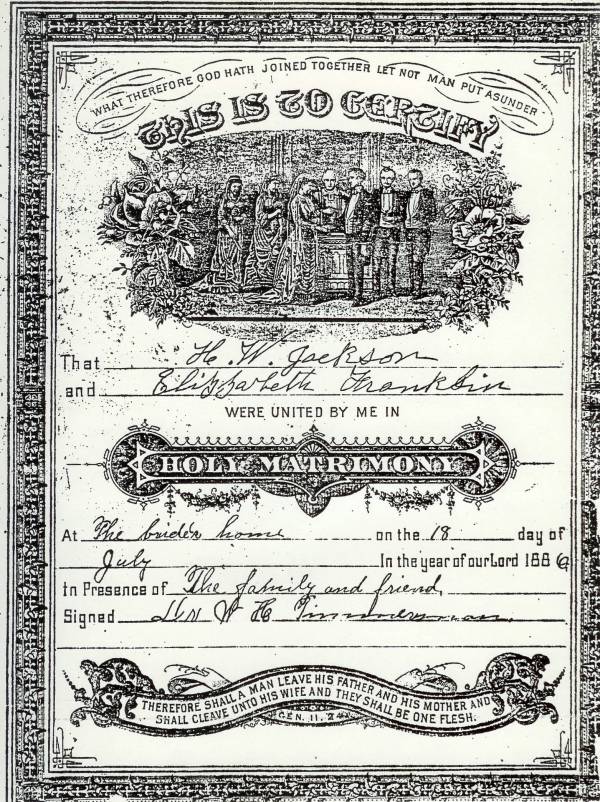 WHAT THEREFORE GOD HATH JOINED TOGETHER LET NOT MAN PUT ASUNDER
THIS IS TO CERTIFY
That H. W. Jackson
and Elizzabeth Franklin
WERE UNITED BY ME IN
HOLY MATRIMONY
At The bride's home on the 18 day of
July In the year of our Lord 1886
In Presence of The family and friend,
Signed W H Timmerman.
THEREFORE SHALL A MAN LEAVE HIS FATHER AND HIS MOTHER AND
SHALL CLEAVE UNTO HIS WIFE AND THEY SHALL BE ONE FLESH.
GEN. 11. 24